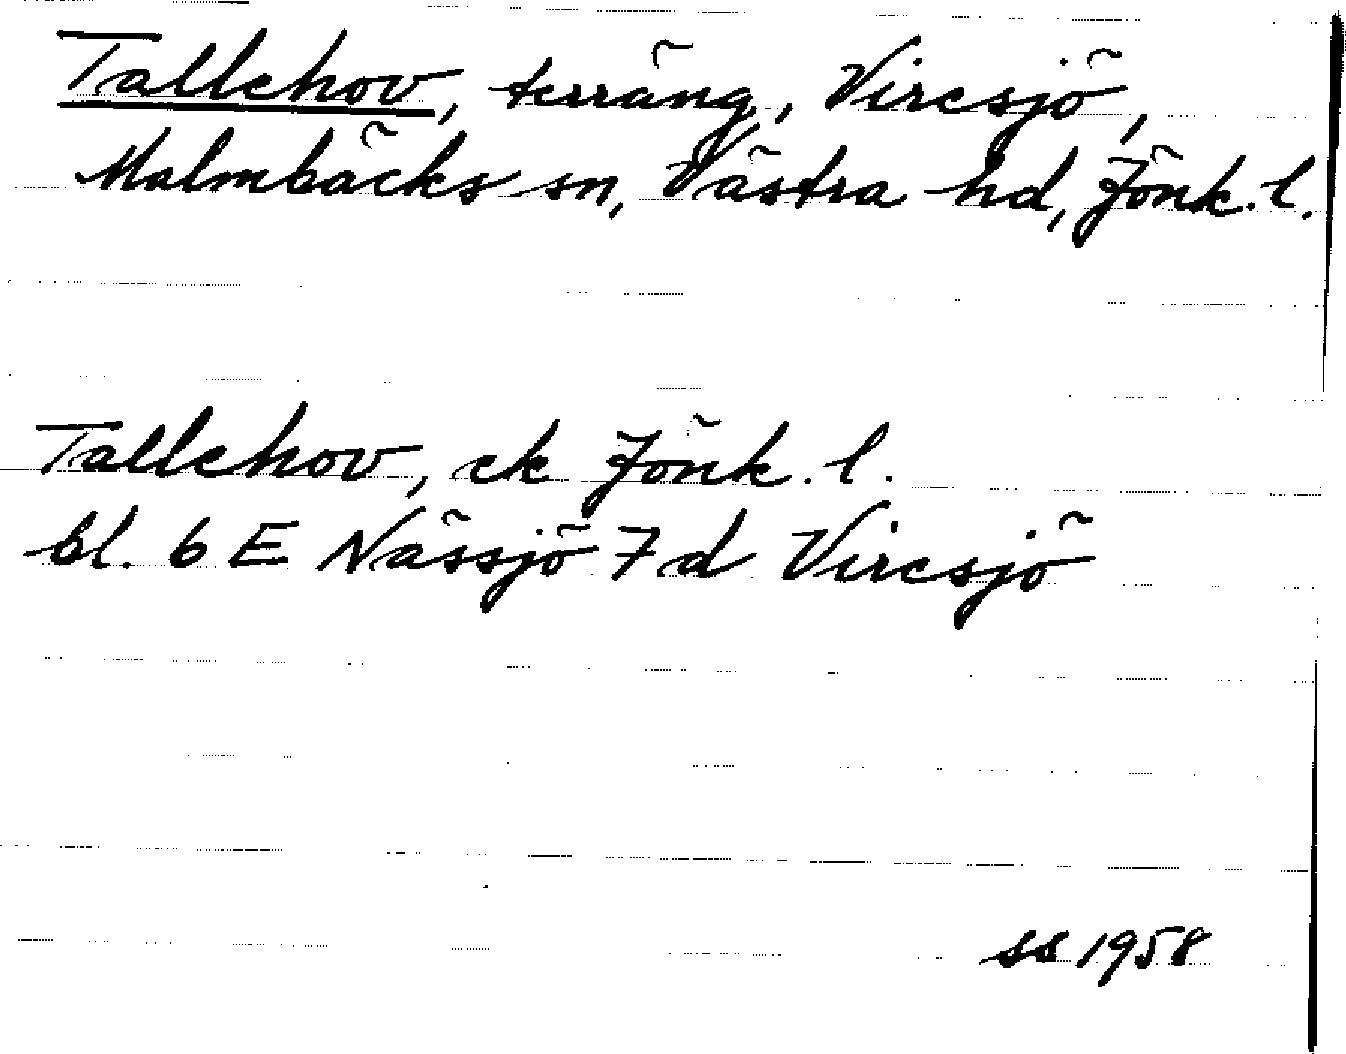 Tallehov, terräng, Viresjö,
Malmbäcks sn, Västra hd, Jönk. l.
Tallehov, ek Jönk. l.
bl. 6 E Nässjö 7 d Viresjö
ss 1958